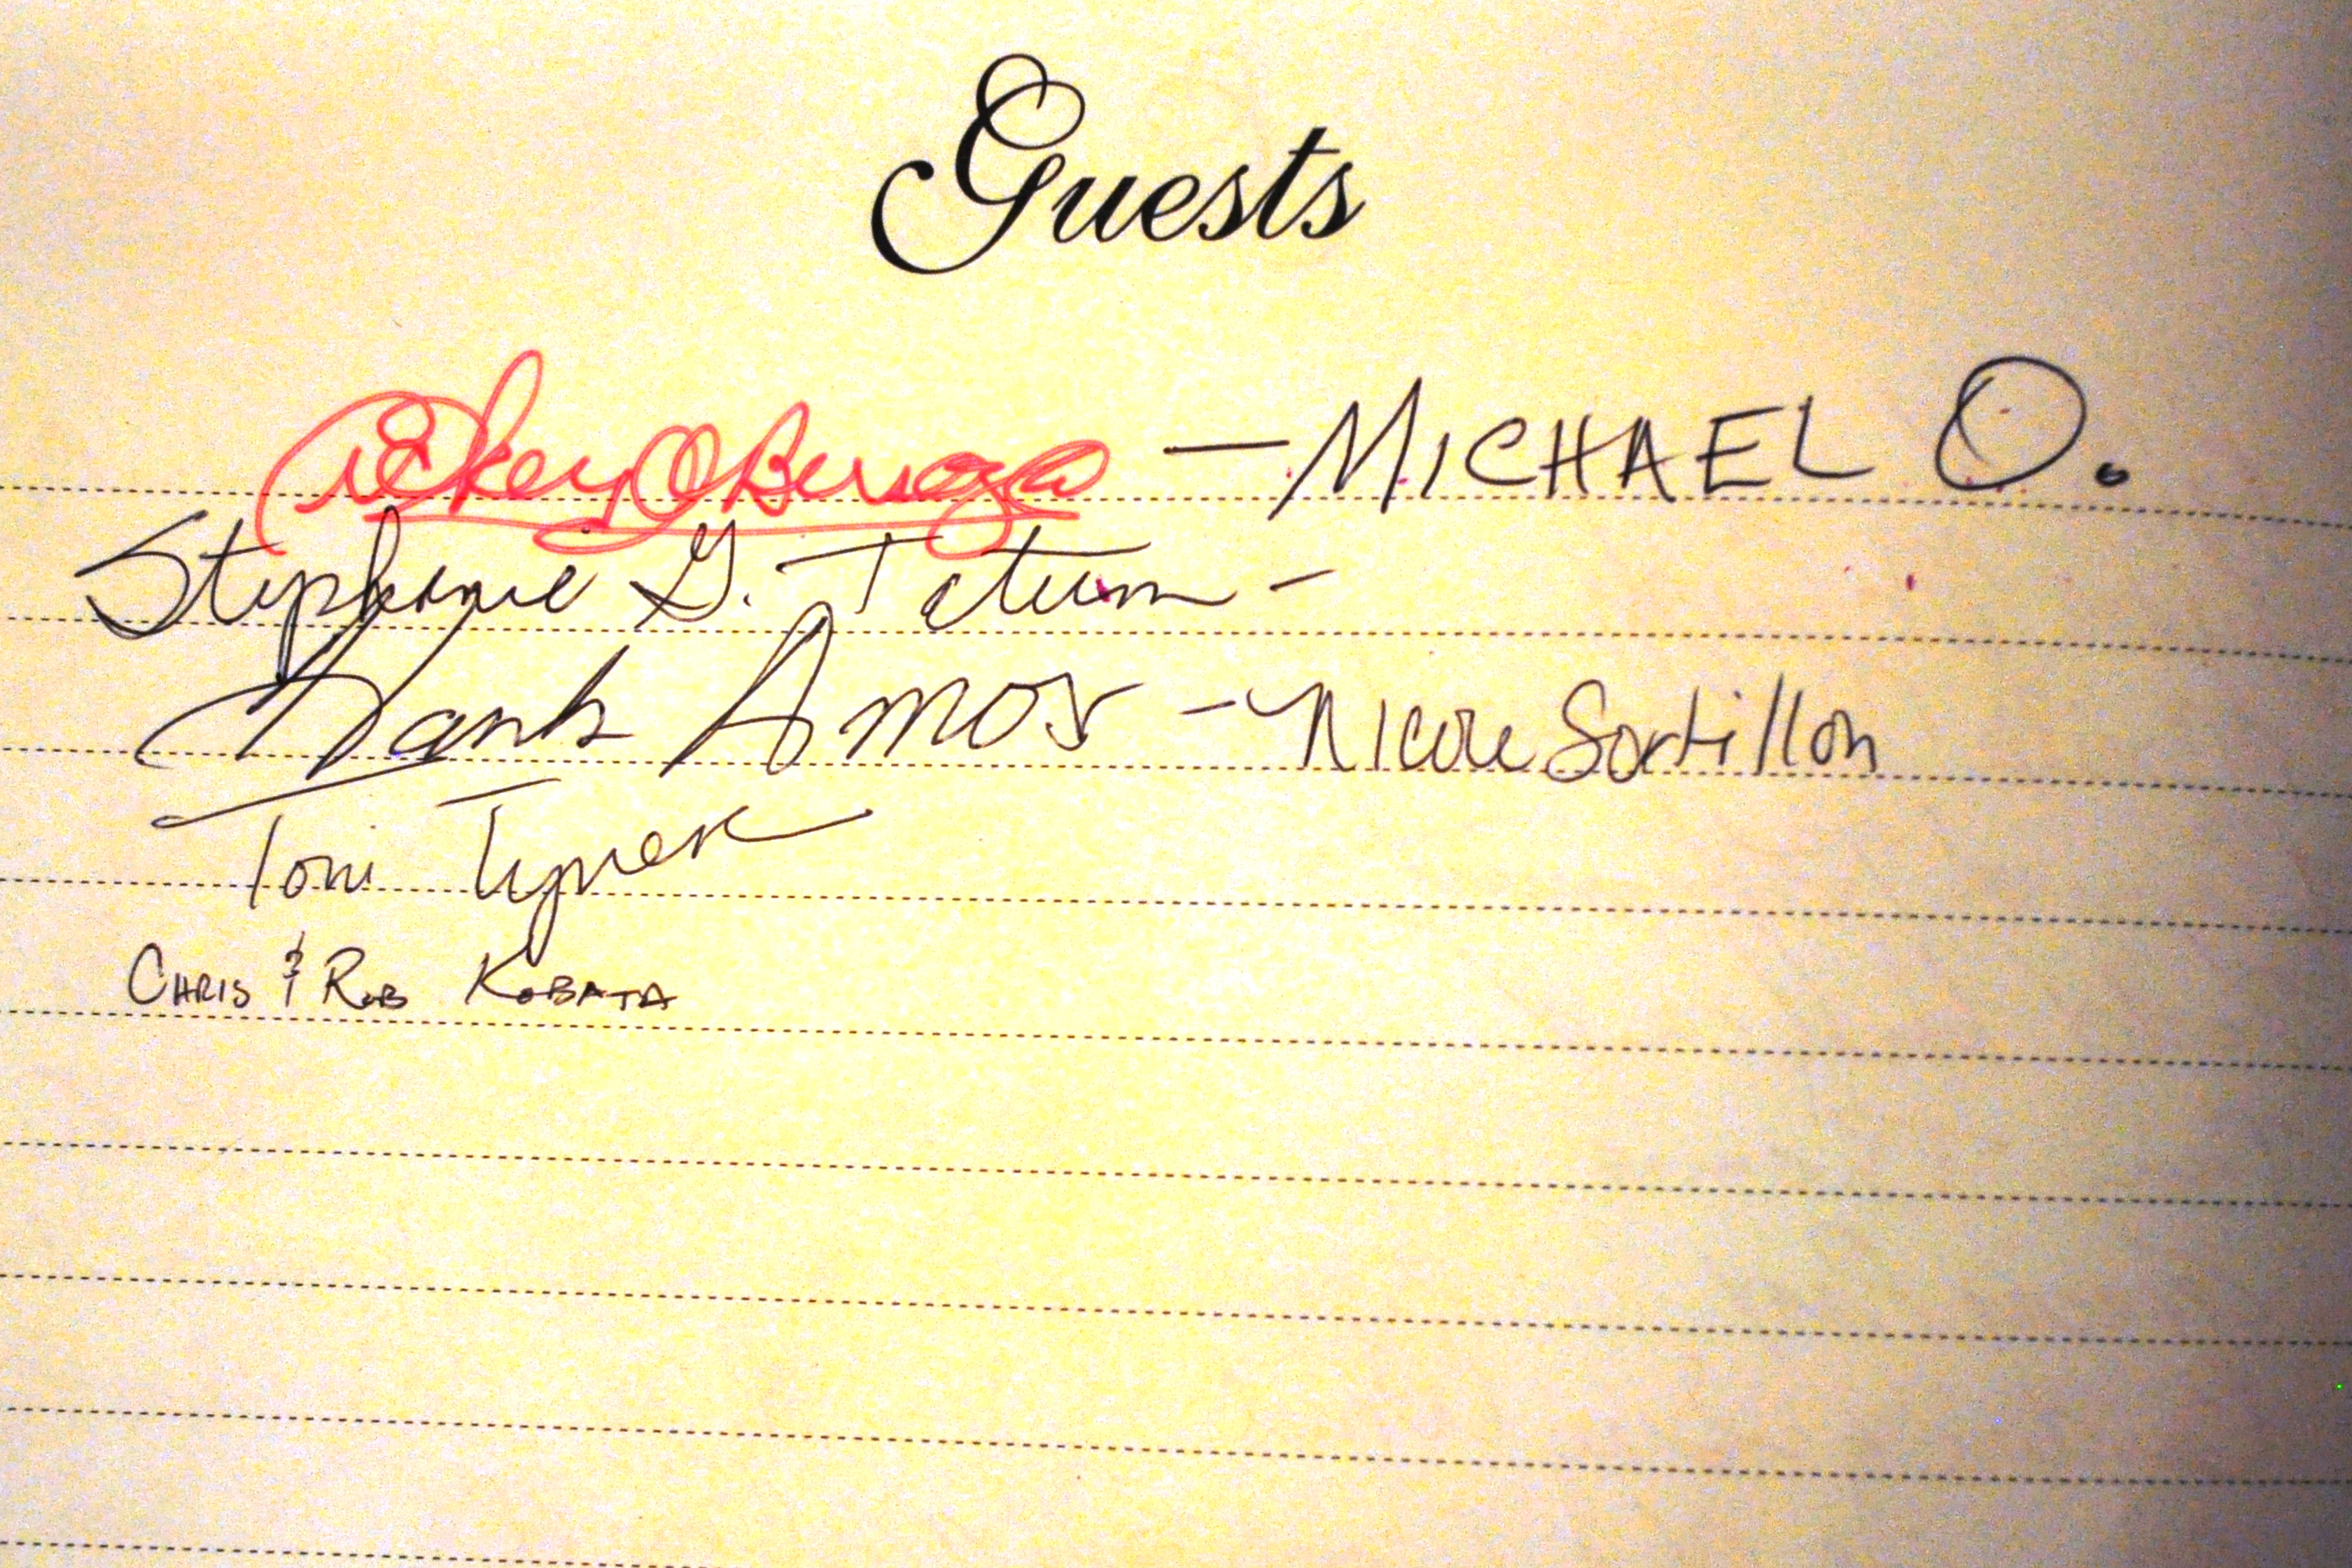 Guests
Rickey — MICHAEL O.
Stephanie G. Tatum -
Hank Amos - Nicole Sortillon
Toni Tyner
CHRIS & ROB KOBATA